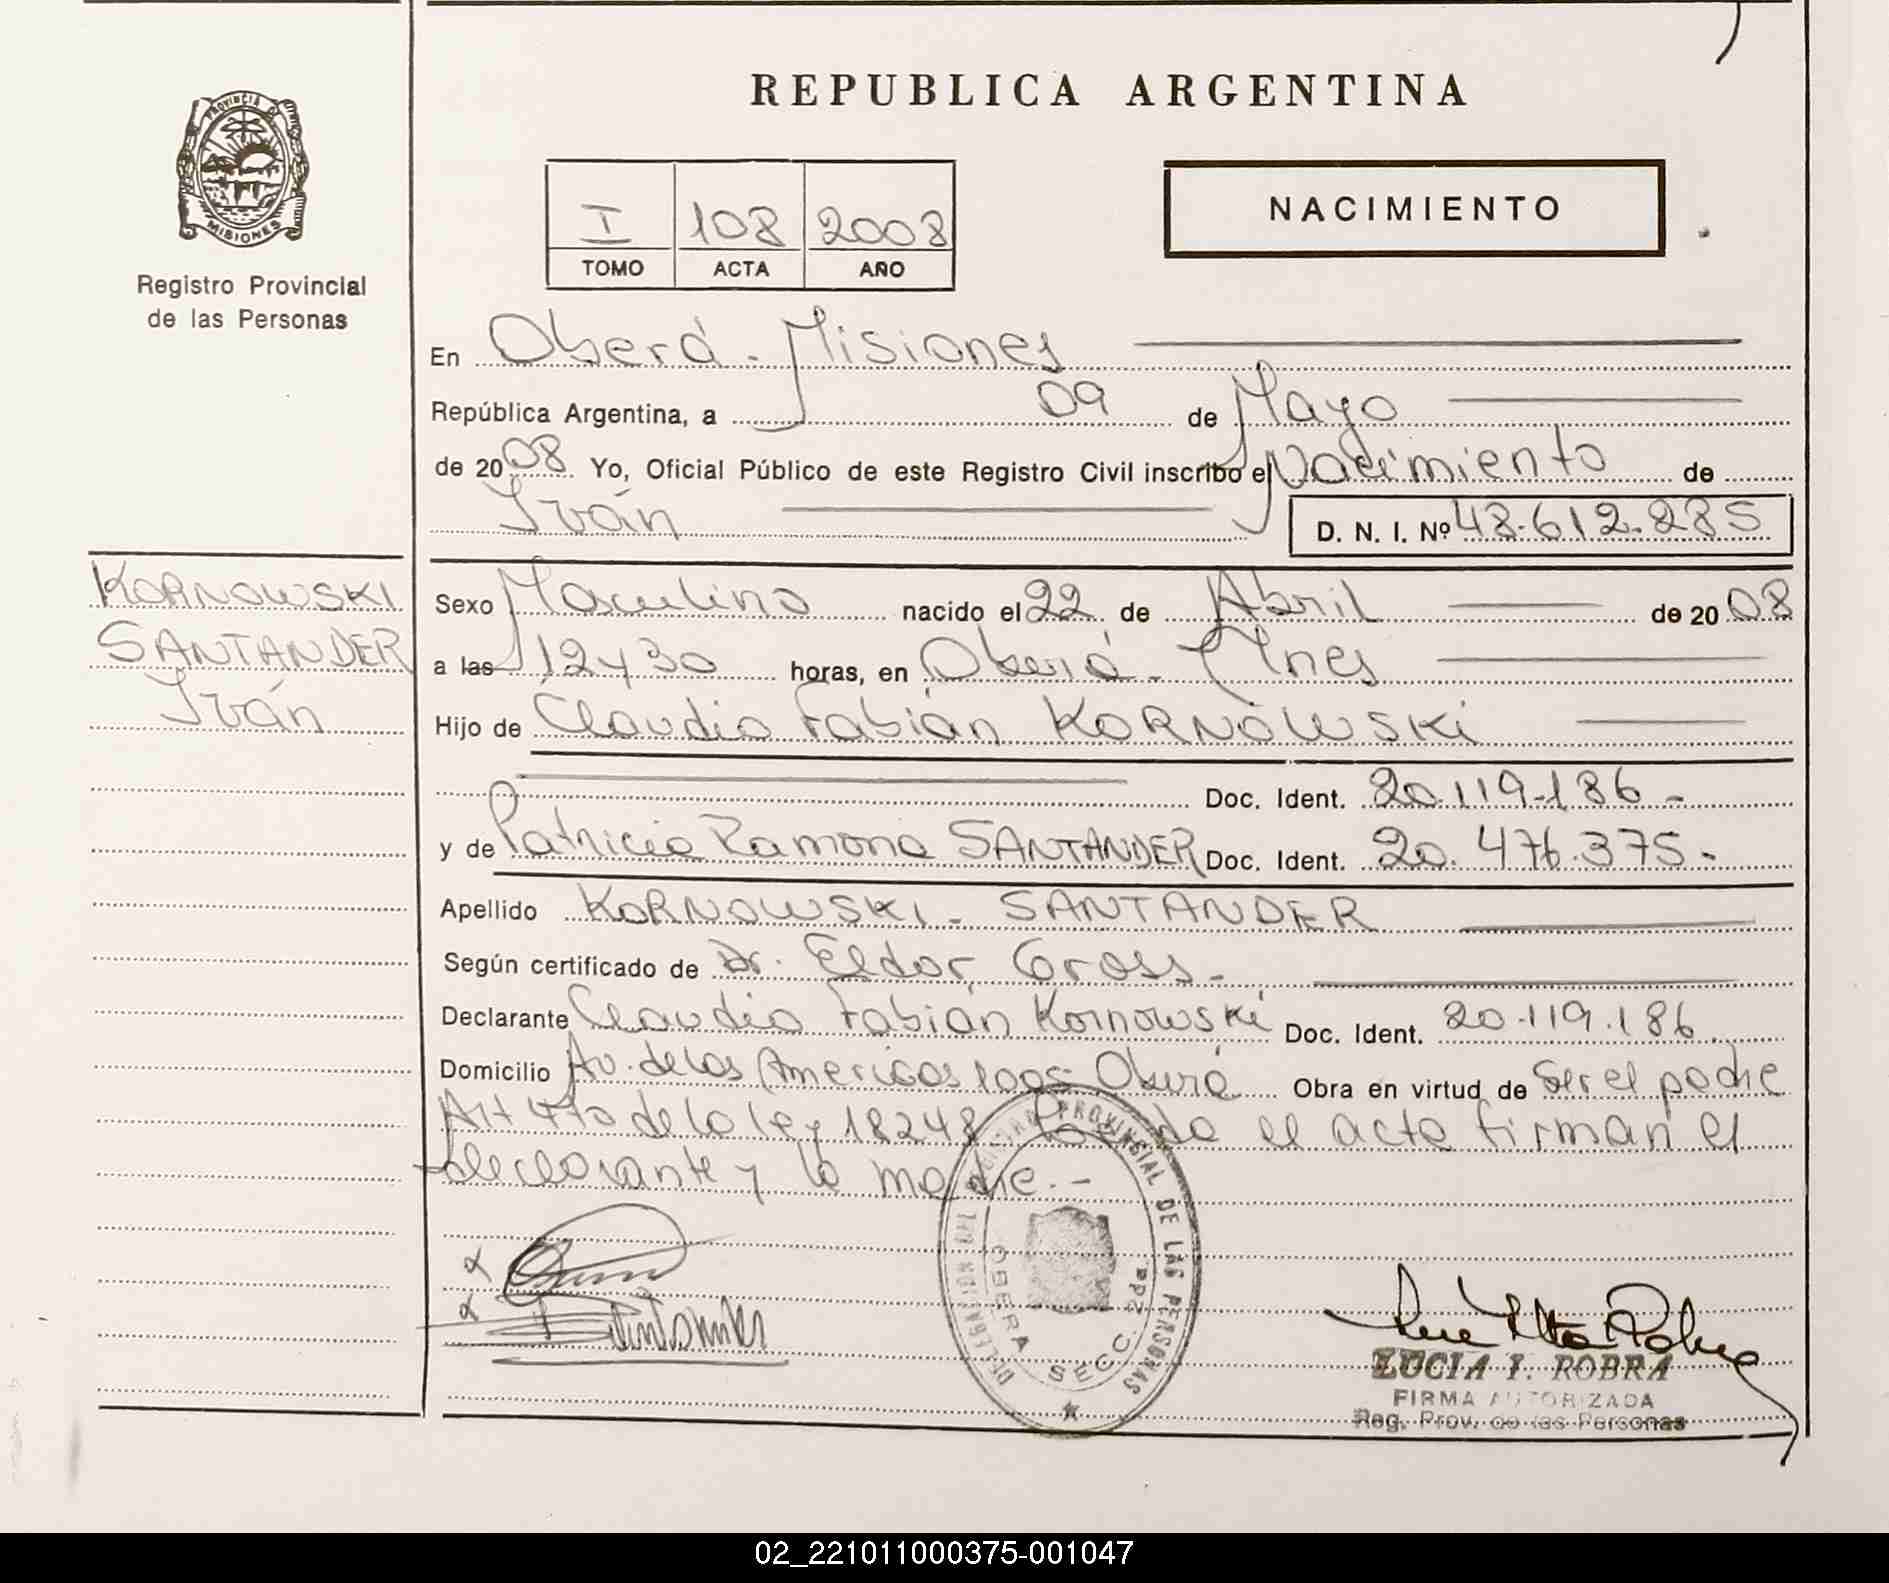 REPUBLICA ARGENTINA
PROVINCIA DE
MISIONES
Registro Provincial
de las Personas
I 108 2008
TOMO ACTA AÑO
NACIMIENTO
En Oberá - Misiones
República Argentina, a 09 de Mayo
de 2008 Yo, Oficial Público de este Registro Civil inscribo el Nacimiento de
Iván
D. N. I. Nº 48.612.285
KORNOWSKI
SANTANDER
Iván
Sexo Masculino nacido el 22 de Abril de 2008
a las 12 y 30 horas, en Oberá - Mnes
Hijo de Claudio Fabián KORNOWSKI
Doc. Ident. 20.119.186 -
y de Patricia Ramona SANTANDER Doc. Ident. 20.476.375 -
Apellido KORNOWSKI - SANTANDER
Según certificado de Dr. Eldor Gross -
Declarante Claudio Fabián Kornowski Doc. Ident. 20.119.186
Domicilio Av. de las Americas Oberá Obra en virtud de ser el padre
Art 4to de la ley 18248 el acta firman el
declarante y la madre. -
REGISTRO PROVINCIAL DE LAS PERSONAS
OBERA SECC. 2da
LUCIA I. ROBRA
FIRMA AUTORIZADA
Reg. Prov. de las Personas
02_221011000375-001047